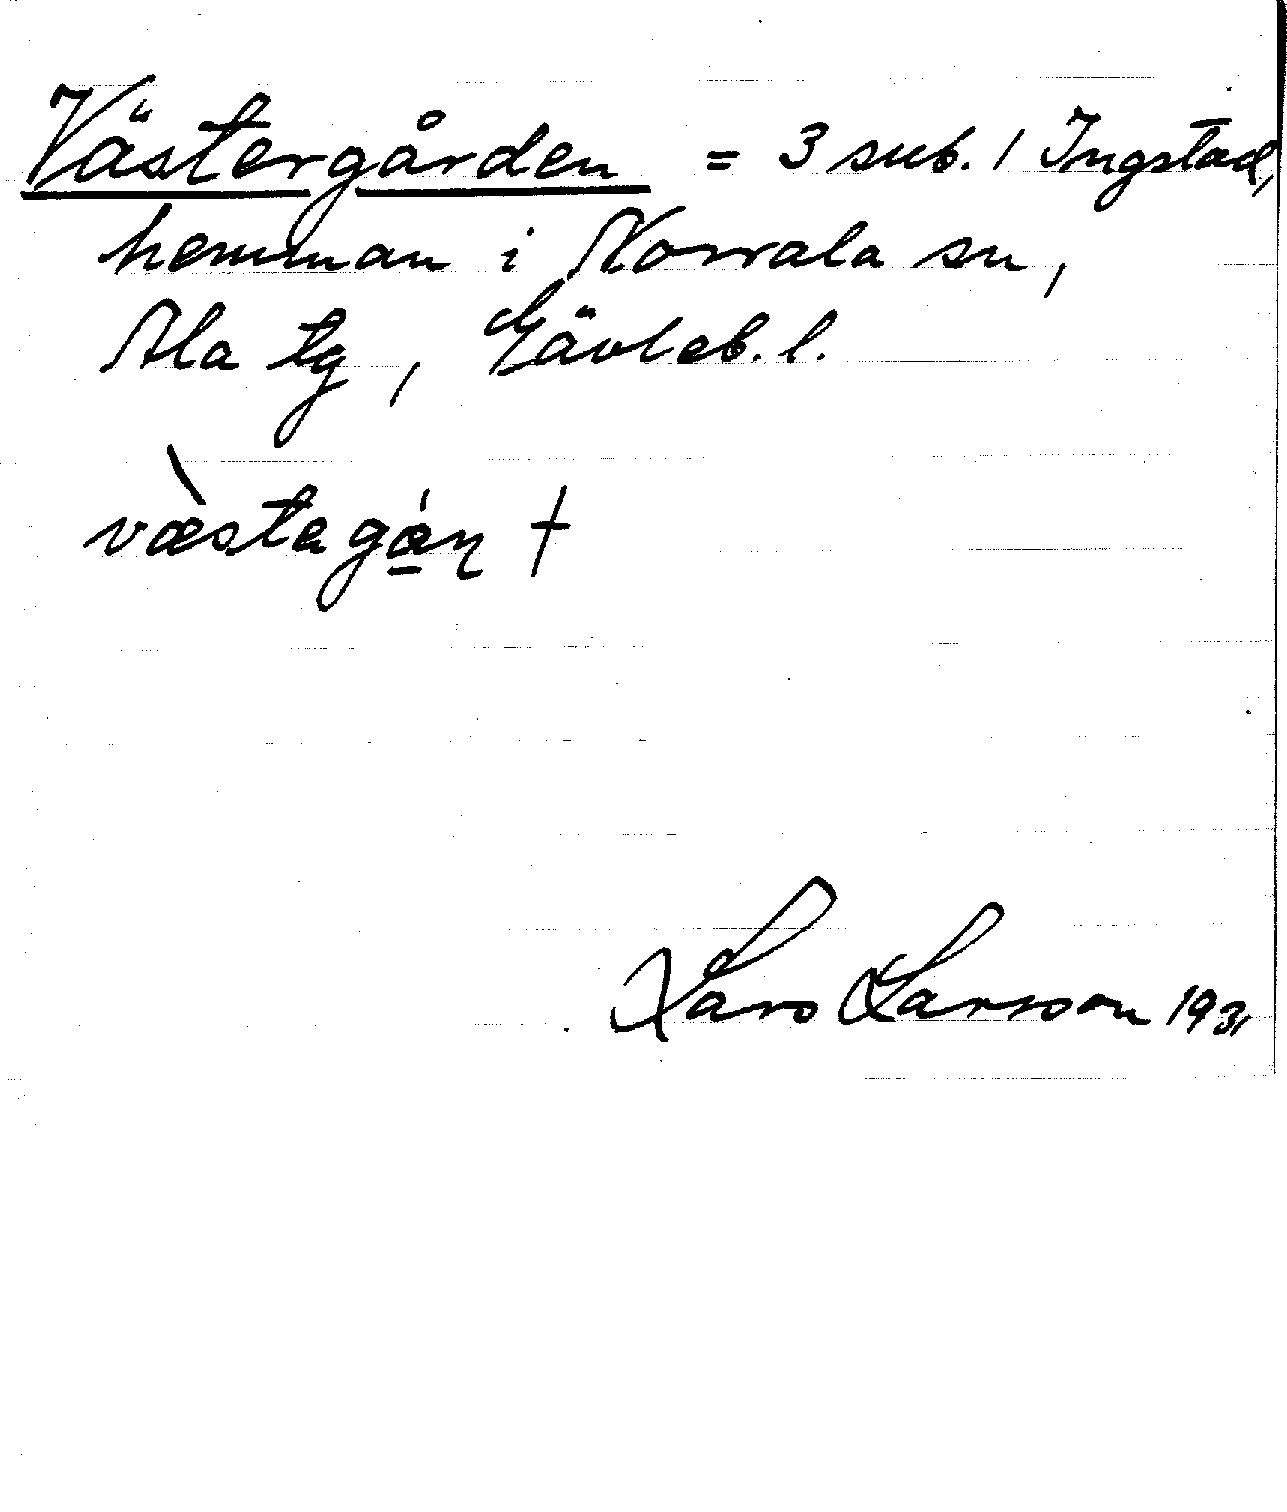 Västergården = 3 sub. 1 Ingstad,
hemman i Norrala sn,
Ala tg, Gävleb. l.
Lars Larsson 1931